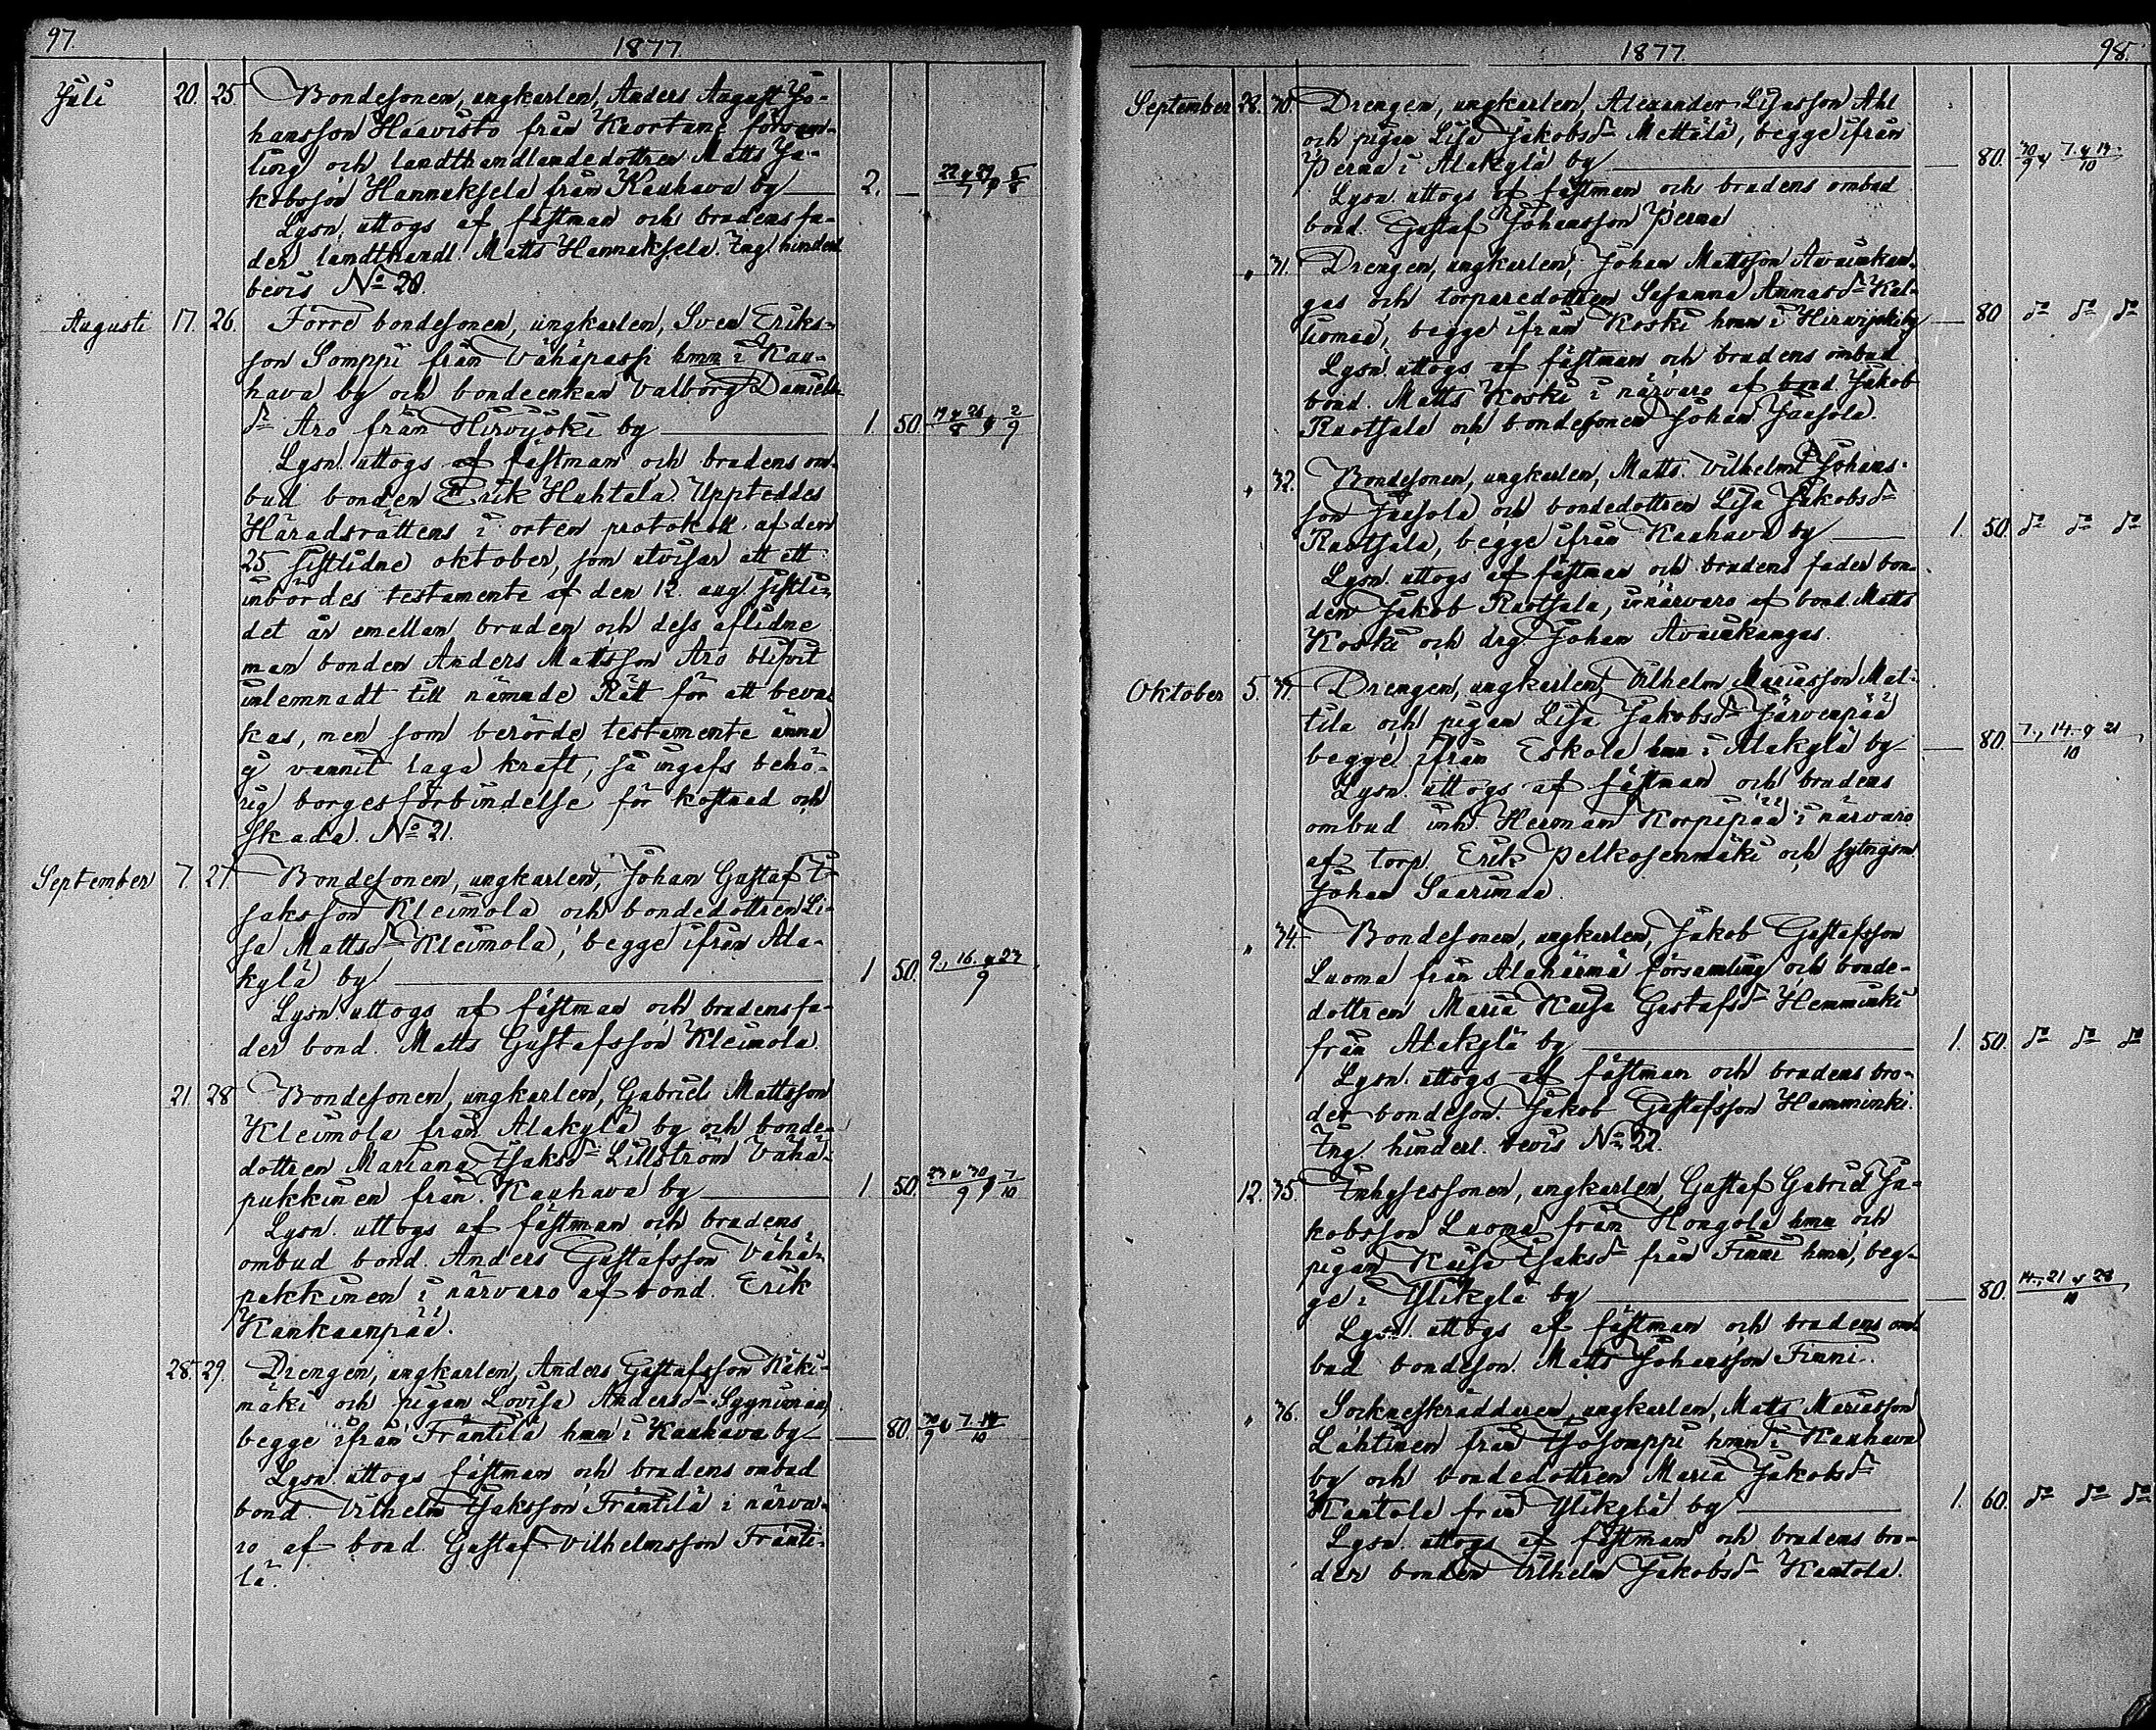 97.
1877.
Juli 20. 25. Bondesonen, ungkarlen, Anders August Jo-
hansson Haavisto från Kuortane försam-
ling och landthandlandedottren Matts Ja-
kobsson Hannuksela från Kauhava by 2. — 22 & 29/7 & 5/8
Lysn. uttogs af fästman och brudens fa-
der landthandl. Matts Hannuksela. Ing. hinderl.
bevis No 20.
Augusti 17. 26. Förre bondesonen, ungkarlen, Sven Eriks-
son Somppi från Vähäpassi hmn i Kau-
hava by och bondeenkan Valborg Daniels-
dr Aro från Hirvijoki by 1. 50. 19 & 26/8 & 2/9
Lysn. uttogs af fästman och brudens om-
bud bonden Erik Huhtala. Uppteddes
Häradsrättens i orten protokoll af den
25. sistlidne oktober, som utvisar att ett
inbördes testamente af den 12. aug. sistli-
det år emellan bruden och dess aflidne
man bonden Anders Mattsson Aro blifvit
inlemnadt till nämnde Rätt för att beva-
kas, men som berörde testamente ännu
ej vunnit laga kraft, så ingafs behö-
rig borgesförbindelse för kostnad och
skada. No 21.
September 7. 27. Bondesonen, ungkarlen, Johan Gustaf I-
saksson Kleimola och bondedottren Li-
sa Mattsdr Kleimola, begge ifrån Ala-
kylä by 1. 50. 9., 16. & 23/9
Lysn. uttogs af fästman och brudens fa-
der bond. Matts Gustafsson Kleimola.
21. 28. Bondesonen, ungkarlen, Gabriel Mattsson
Kleimola från Alakylä by och bonde-
dottren Mariana Isaksdr Lillström Vähä-
pukkinen från Kauhava by 1. 50. 23 & 30/9 & 7/10
Lysn. uttogs af fästman och brudens
ombud bond. Anders Gustafsson Vähä-
pukkinen i närvaro af bond. Erik
Kankaanpää.
28. 29. Drengen, ungkarlen, Anders Gustafsson Käki-
mäki och pigan Lovisa Andersdr
begge ifrån Fräntilä hmn i Kauhava by — 80. 30/9 & 7. 14/10
Lysn. uttogs fästman och brudens ombud
bond. Vilhelm Isaksson Fräntilä i närva-
ro af bond. Gustaf Vilhelmsson Fränti-
lä.
1877.
98.
September 28. 30. Drengen, ungkarlen, Alexander Lisasson Ahl
och pigan Lisa Jakobsdr Mettälä, begge ifrån
Perna i Alakylä by — 80. 30/9 & 7. & 14./10
Lysn. uttogs af fästman och brudens ombud
bond. Gustaf Johansson Perna
" 31. Drengen, ungkarlen, Johan Mattsson Avainkan-
gas och torparedottren Susanna Annasdr Kal-
liomaa, begge ifrån Koski hmn i Hirvijoki by — 80 do do do
Lysn. uttogs af fästman och brudens ombud
bond. Matts Koski i närvaro af bond. Jakob
Ruotsala och bondesonen Johan Jaasola.
" 32. Bondesonen, ungkarlen, Matts Vilhelm Johans-
son Jaasola och bondedottren Lisa Jakobsdr
Ruotsala, begge ifrån Kauhava by 1. 50. do do do
Lysn. uttogs af fästman och brudens fader bon-
den Jakob Ruotsala, i närvaro af bond. Matts
Koski och drg. Johan Avainkangas.
Oktober 5. 33. Drengen, ungkarlen, Vilhelm Mariasson Mat-
tila och pigan Lisa Jakobsdr Järvenpää
begge ifrån Eskola hmn i Alakylä by — 80. 7., 14. & 21/10
Lysn. uttogs af fästman och brudens
ombud inh. Herman Korpipää i närvaro
af torp. Erik Pelkosenmäki och sytngsm.
Johan Saarimaa.
" 34. Bondesonen, ungkarlen, Jakob Gustafsson
Luoma från Alahärmä församling och bonde-
dottren Maria Kaisa Gustafsdr Hemminki
från Alakylä by 1. 50. do do do
Lysn. uttogs af fästman och brudens bro-
der bondeson. Jakob Gustafsson Hemminki.
Ing. hinderl. bevis No 22.
12. 35. Inhysessonen, ungkarlen, Gustaf Gabriel Ja-
kobsson Luoma från Kongola hmn och
pigan Kaisa Isaksdr från Finni hmn, beg-
ge i Ylikylä by — 80. 14., 21 & 28/10
Lysn. uttogs af fästman och brudens om-
bud bondeson. Matts Johansson Finni.
" 36. Sockneskräddaren, ungkarlen, Matts Mariasson
Lahtinen från Isosomppi hmn i Kauhava
by och bondedottren Maria Jakobsdr
Kantola från Ylikylä by 1. 60. do do do
Lysn. uttogs af fästman och brudens bro-
der bonden Vilhelm Jakobsdr Kantola.